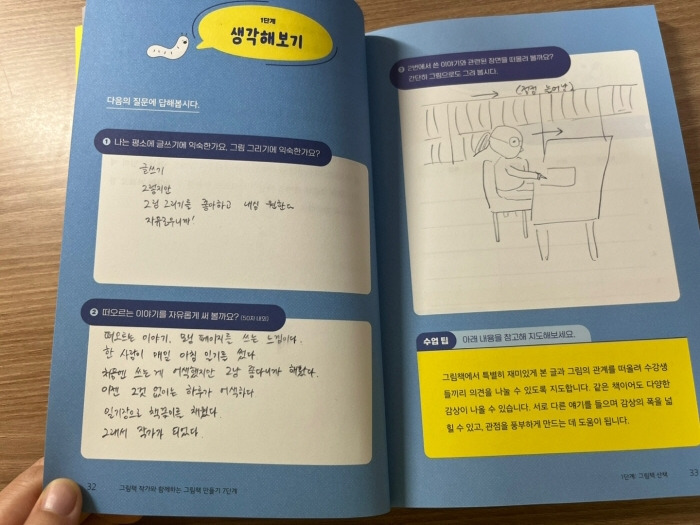 1단계
생각해보기
다음의 질문에 답해봅시다.
1 나는 평소에 글쓰기에 익숙한가요, 그림 그리기에 익숙한가요?
글쓰기
그렇지만
그림 그리기를 좋아하고 내심 원한다
자유로우니까!
2 떠오르는 이야기를 자유롭게 써 볼까요? (50자 내외)
떠오르는 이야기. 모닝 페이지를 쓰는 느낌이다.
한 사람이 매일 아침 일기를 썼다
처음엔 쓰는 게 어색했지만 그냥 좋다니까 해봤다.
이젠 그것 없이는 하루가 어색하다
일기장으로 책꽂이를 채웠다.
그래서 작가가 되었다.
32 그림책 작가와 함께하는 그림책 만들기 7단계
3 2번에서 쓴 이야기와 관련된 장면을 떠올려 볼까요?
간단히 그림으로도 그려 봅시다.
(점점 늘어남)
수업 팁 아래 내용을 참고해 지도해보세요.
그림책에서 특별히 재미있게 본 글과 그림의 관계를 떠올려 수강생
들끼리 의견을 나눌 수 있도록 지도합니다. 같은 책이어도 다양한
감상이 나올 수 있습니다. 서로 다른 얘기를 들으며 감상의 폭을 넓
힐 수 있고, 관점을 풍부하게 만드는 데 도움이 됩니다.
1단계: 그림책 산책 33